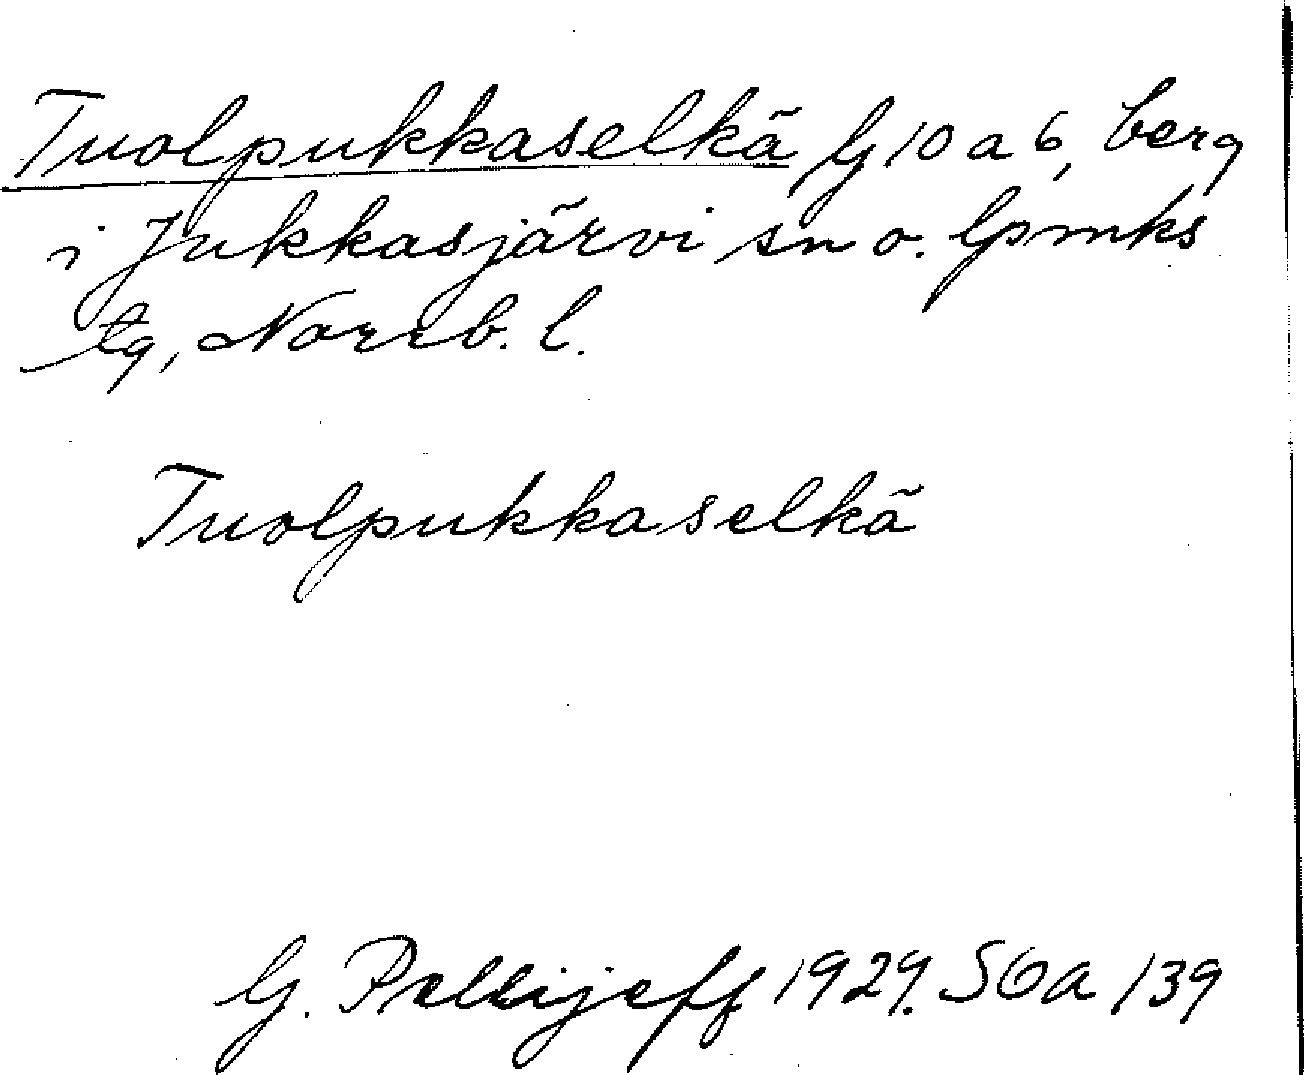 Tuolpukkaselkä G 10 a 6, berg
i Jukkasjärvi sn o. lpmks
tg, Norrb. l.
Tuolpukkaselkä
G. Pellijeff 1929. SOa 139